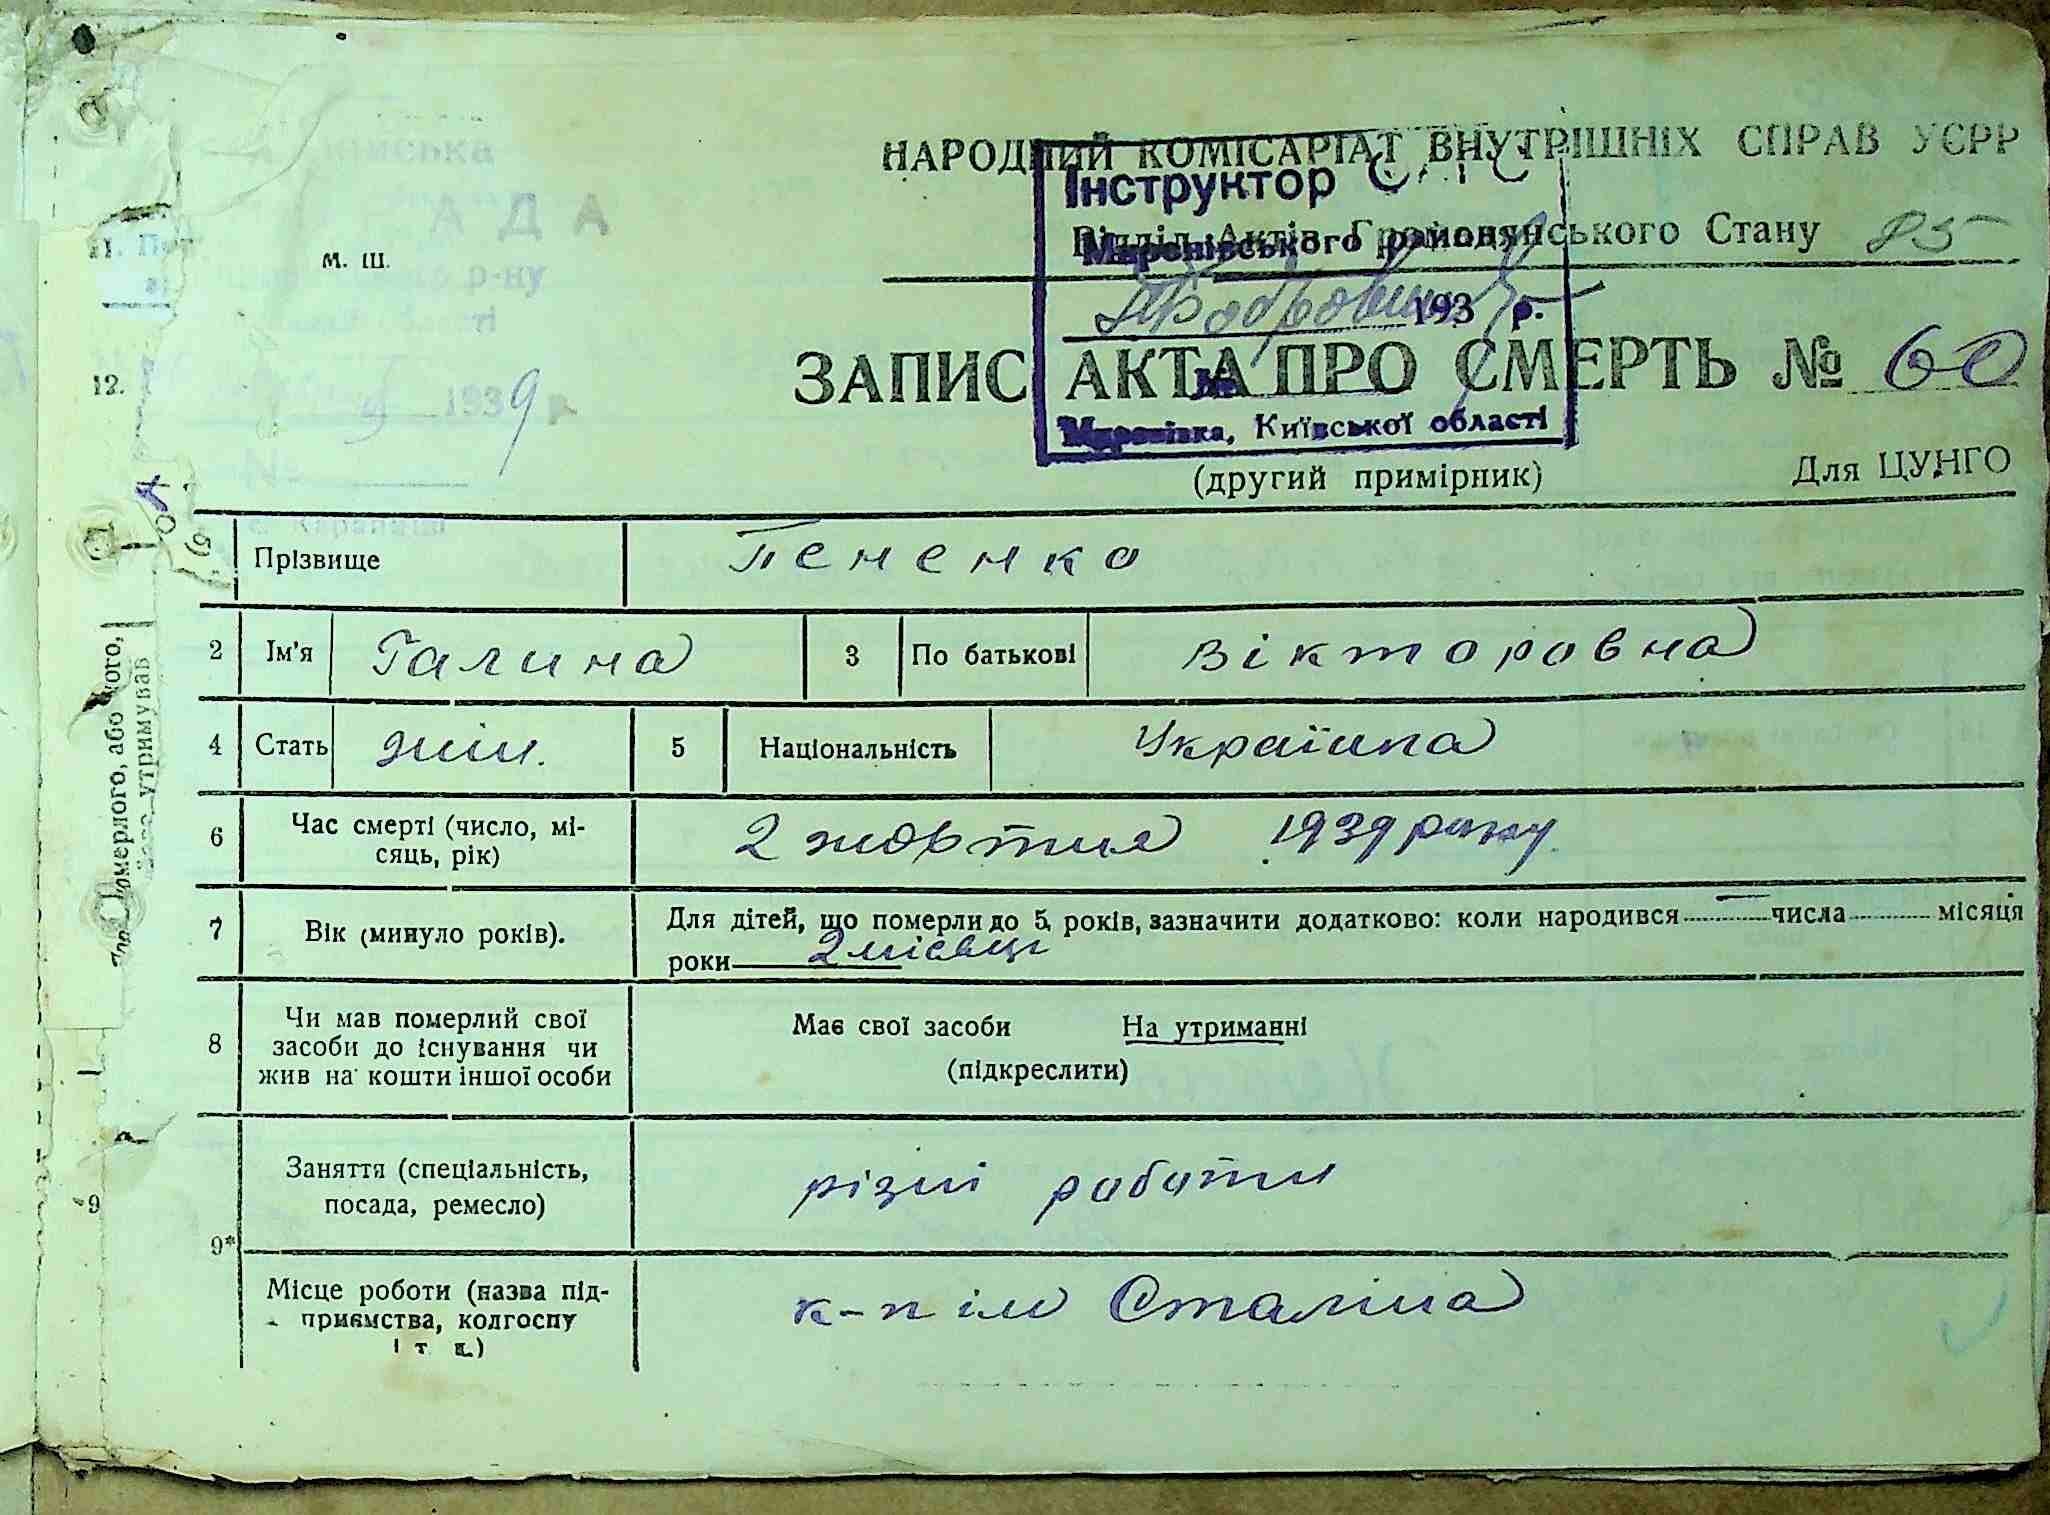 НАРОДНИЙ КОМІСАРІАТ ВНУТРІШНІХ СПРАВ УСРР
Інструктор
Відділ Актів Громадянського Стану 85
Миронівського району
193 р.
ЗАПИС АКТА ПРО СМЕРТЬ № 60
№
Миронівка, Київської області
(другий примірник)
Для ЦУНГО
м. ш.
АДА
р-ну
1939 р.
12.
Прізвище Пененко
2 Ім'я Галина 3 По батькові Вікторовна
4 Стать жін. 5 Національність Українка
6 Час смерті (число, мі-
сяць, рік) 2 жовтня 1939 року
7 Вік (минуло років). Для дітей, що померли до 5 років, зазначити додатково: коли народився — числа місяця
роки 2 місяці
8 Чи мав померлий свої
засоби до існування чи
жив на кошти іншої особи
Має свої засоби На утриманні
(підкреслити)
Заняття (спеціальність,
посада, ремесло) різні роботи
9*
Місце роботи (назва під-
приємства, колгоспу
і т. д.) к-п ім Сталіна
померлого, або того,
утримував
9